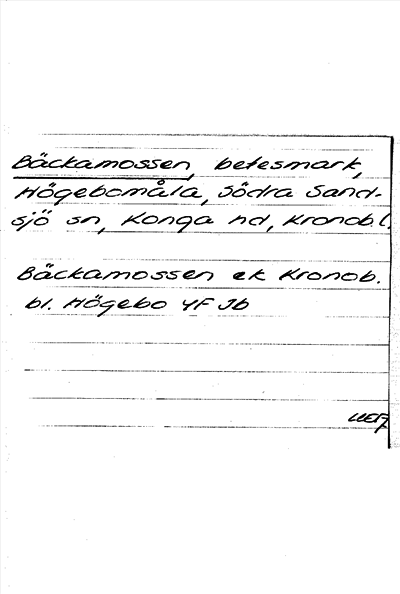 Bäckamossen, betesmark,
Högebomåla, Södra Sand-
sjö sn, Konga hd, Kronob.l.
Bäckamossen ek Kronob.
bl. Högebo YF Jb